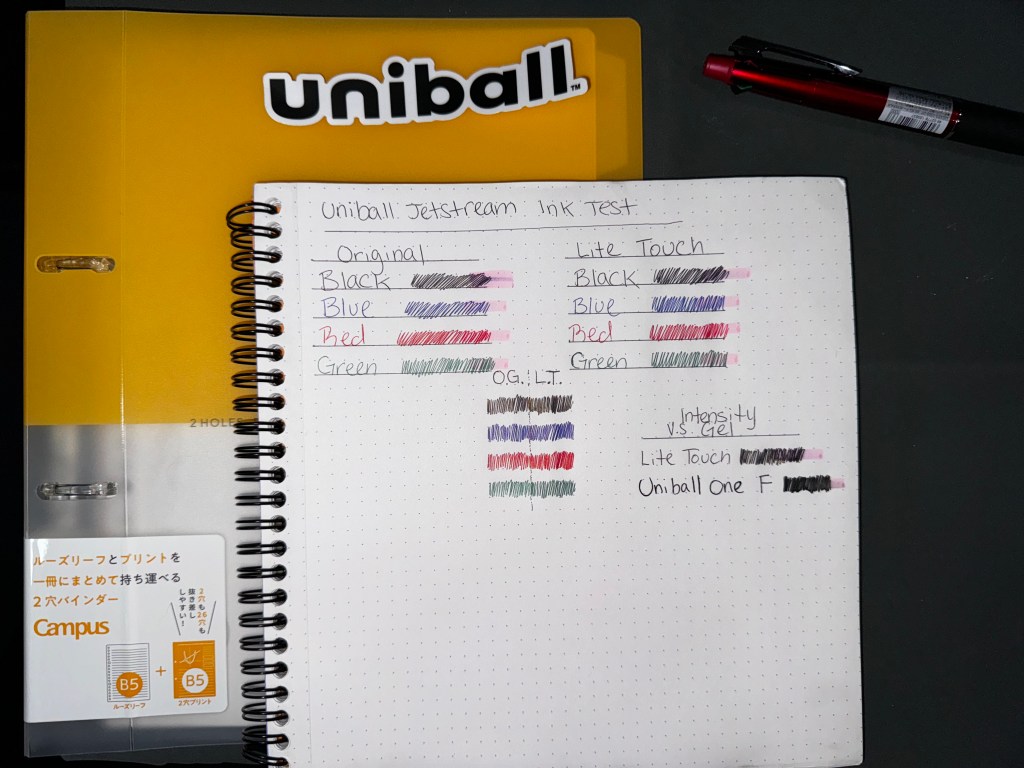 uniball™
Uniball Jetstream Ink Test
Original
Black
Blue
Red
Green
Lite Touch
Black
Blue
Red
Green
O.G. L.T.
Intensity
V.S. Gel
Lite Touch
Uniball One F
2 HOLES
ルーズリーフとプリントを
一冊にまとめて持ち運べる
2穴バインダー
2穴も26穴も
抜き差し
しやすい!
Campus
B5
+
B5
ルーズリーフ
2穴プリント